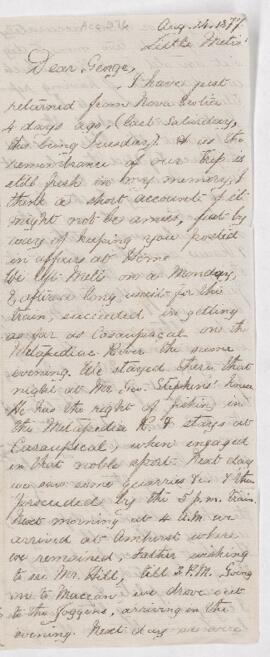 Aug. 24. 1877
Little Metis
Dear George,
I have just
returned from Nova Scotia
4 days ago, (last Saturday,
this being Tuesday). As the
remembrance of our trip is
still fresh in my memory, I
think a short account of it
might not be amiss, just by
way of keeping you posted
in affairs at Home
We left Metis on a Monday,
& after a long wait for the
train, succeeded in getting
as far as Casaupscal on the
Metapediac River the same
evening. We stayed there that
night at Mr. Geo. Stephens' house
He has the right of fishing in
the Metapedia R. & stays at
Casaupscal, when engaged
in that noble sport. Next day
we saw some quarries &c. & then
proceeded by the 5 p.m. train.
Next morning at 4 A.M. we
arrived at Amherst where
we remained, Father wishing
to see Mr. Hill, till 2 P.M. Going
on to Maccan we drove out
to the Joggins, arriving in the
evening. Next day we were